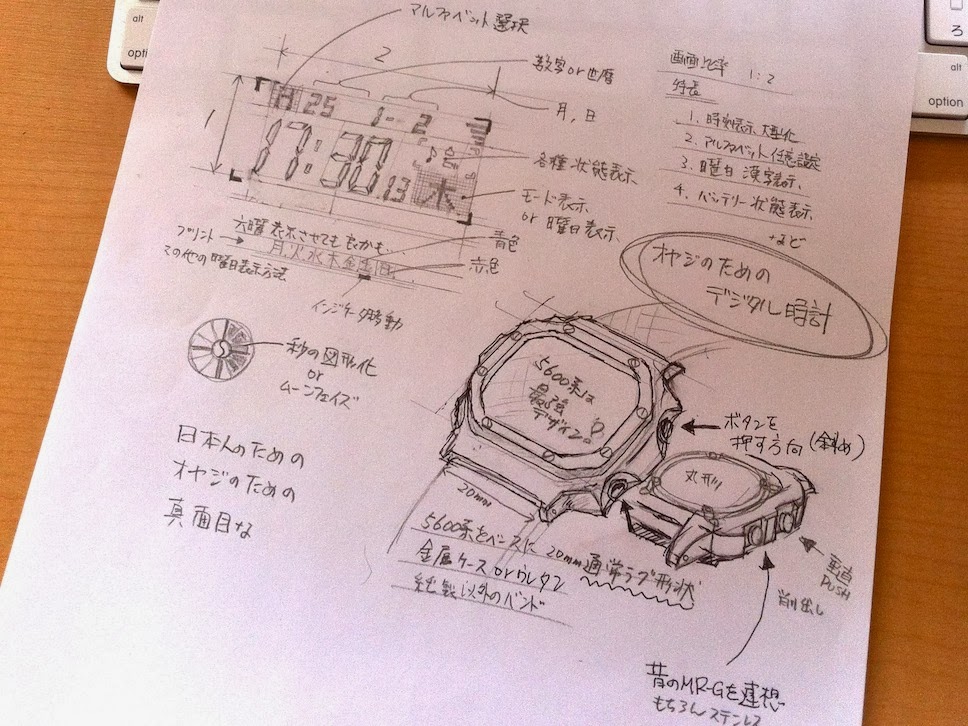 アルファベット選択
2
数字or西暦
月,日
各種状態表示
モード表示
or 曜日表示
青色
赤色
1
H 25 1-2
17:30 13
木
六曜表示させても良かも…
プリント
月火水木金土日
その他の曜日表示方法
インジケータ移動
画面比率 1:2
特長
1. 時刻表示大型化
2. アルファベット任意設定
3. 曜日漢字表示
4. バッテリー状態表示
など
オヤジのための
デジタル時計
秒の図形化
or
ムーンフェイズ
日本人のための
オヤジのための
真面目な
5600系は
最強
デザイン。
ボタンを
押す方向(斜め)
丸形
20mm
5600系をベースに 20mm通常ラグ形状
金属ケースorウレタン
純製以外のバンド
垂直
PUSH
削り出し
昔のMR-Gを連想
もちろんステンレス
alt
option
alt
option
ろ